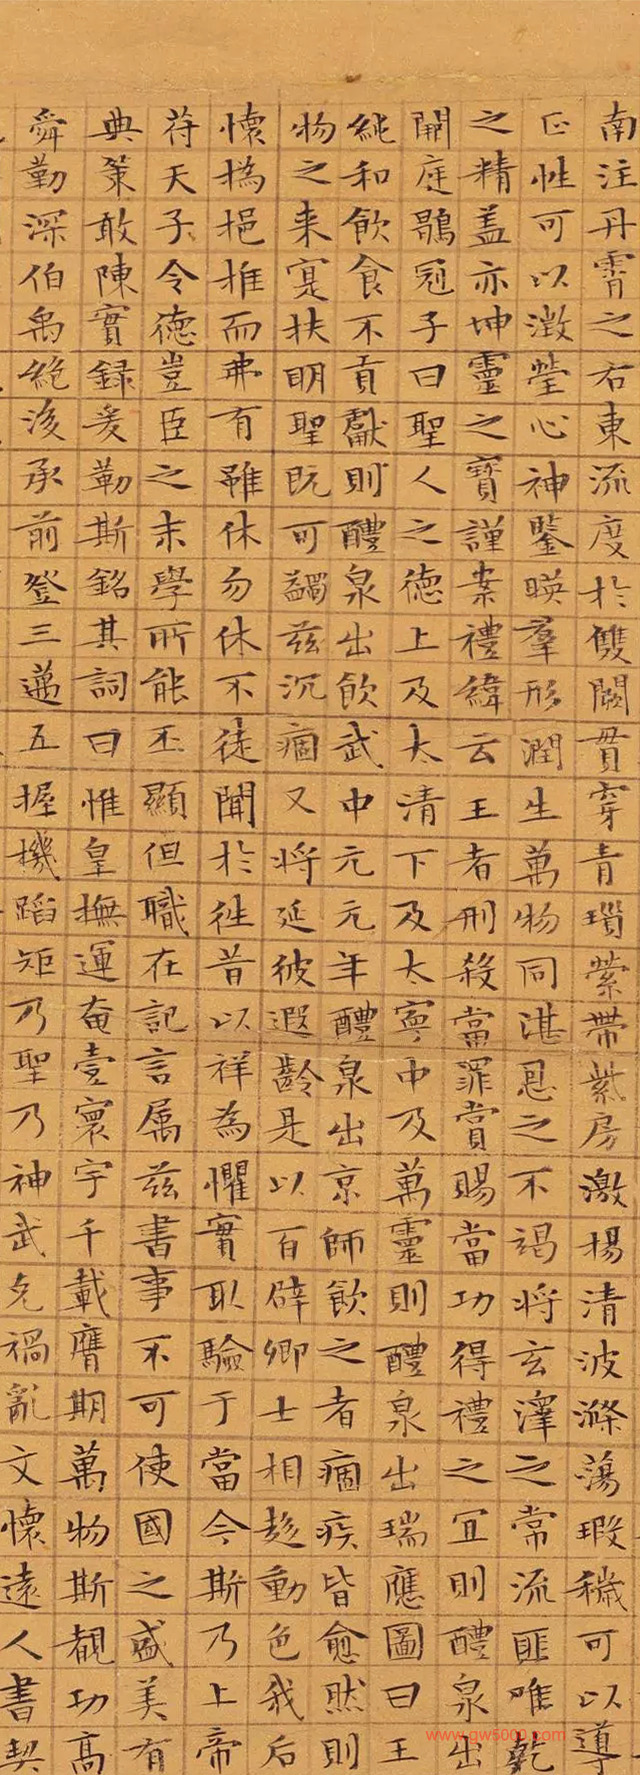 南注丹霄之右東流度於雙闕貫穿青瑣縈帶紫房激揚清波滌蕩瑕穢可以導
正性可以澂瑩心神鑒暎羣形潤生萬物同湛恩之不竭将玄澤之常流匪唯乾
之精蓋亦坤靈之寶謹案禮緯云王者刑殺當罪賞賜當功得禮之宜則醴泉出
開庭鶡冠子曰聖人之德上及太清下及太寧中及萬靈則醴泉出瑞應圖曰王
純和飲食不貢獻則醴泉出飲武中元元年醴泉出京師飲之者痼疾皆愈然則
物之来寔扶明聖既可蠲茲沉痼又将延彼遐齡是以百辟卿士相趍動色我后
懷撝挹推而弗有雖休勿休不徒聞於往昔以祥為懼實取驗于當今斯乃上帝
符天子令德豈臣之末學所能丕顯但職在記言属茲書事不可使國之盛美有
典策敢陳實録爰勒斯銘其詞曰惟皇撫運奄壹寰宇千載膺期萬物斯覩功高
舜勤深伯禹絶後承前登三邁五握機蹈矩乃聖乃神武克禍亂文懷遠人書契
www.gw5000.com